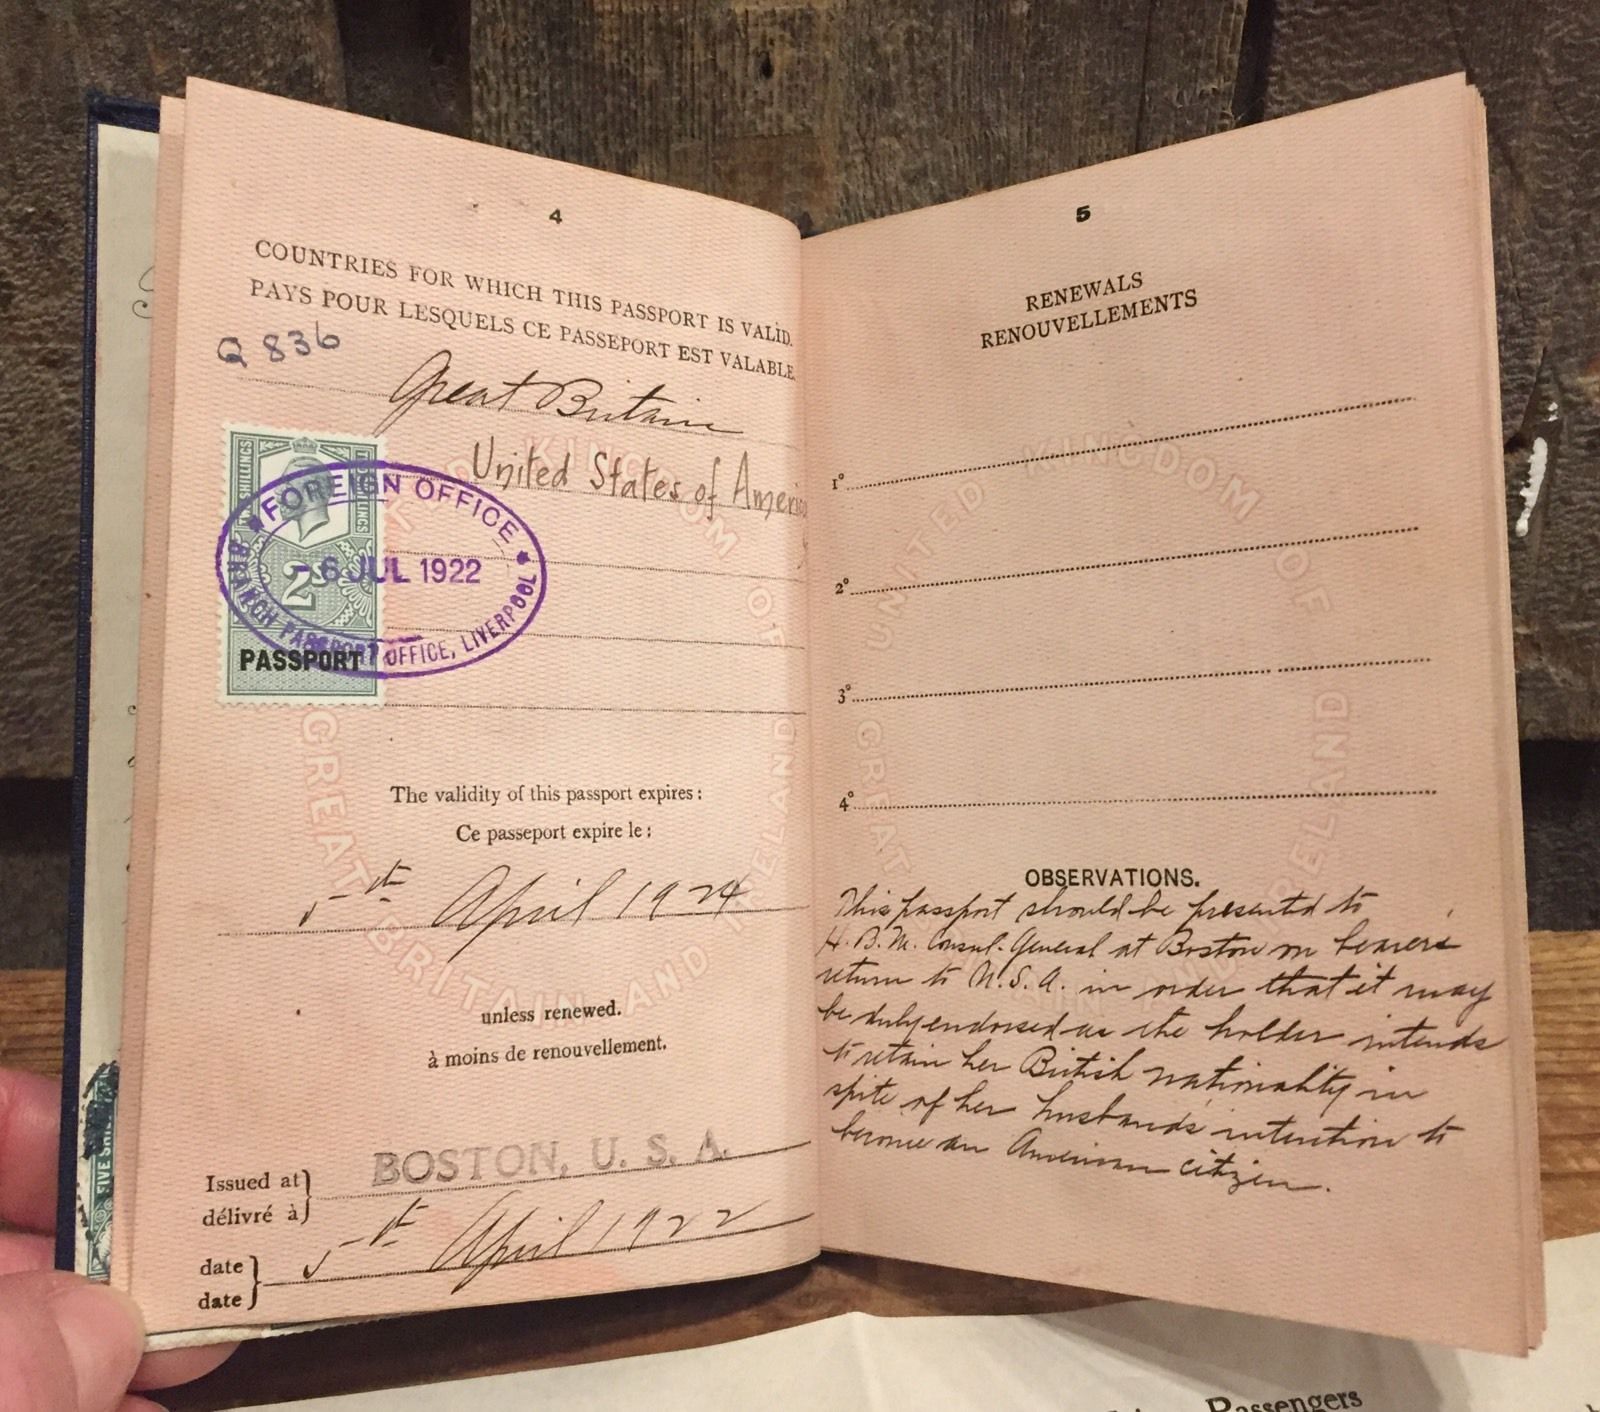 4
COUNTRIES FOR WHICH THIS PASSPORT IS VALID.
PAYS POUR LESQUELS CE PASSEPORT EST VALABLE.
Q 836
Great Britain
United States of America
TWO SHILLINGS
TWO SHILLINGS
FOREIGN OFFICE
- 6 JUL 1922
2s
BRANCH PASSPORT OFFICE, LIVERPOOL
PASSPORT
UNITED KINGDOM OF
GREAT BRITAIN AND IRELAND
The validity of this passport expires:
Ce passeport expire le:
5th April 1924
unless renewed.
à moins de renouvellement.
Issued at
délivré à
BOSTON, U. S. A.
date
date
5th April 1922
FIVE SHIL
5
RENEWALS
RENOUVELLEMENTS
1°
2°
3°
4°
UNITED KINGDOM OF
GREAT AND IRELAND
OBSERVATIONS.
This passport should be presented to
H. B. M. Consul-General at Boston on bearer's
return to U.S.A. in order that it may
be duly endorsed as the holder intends
to retain her British nationality in
spite of her husband's intention to
become an American citizen.
Passengers